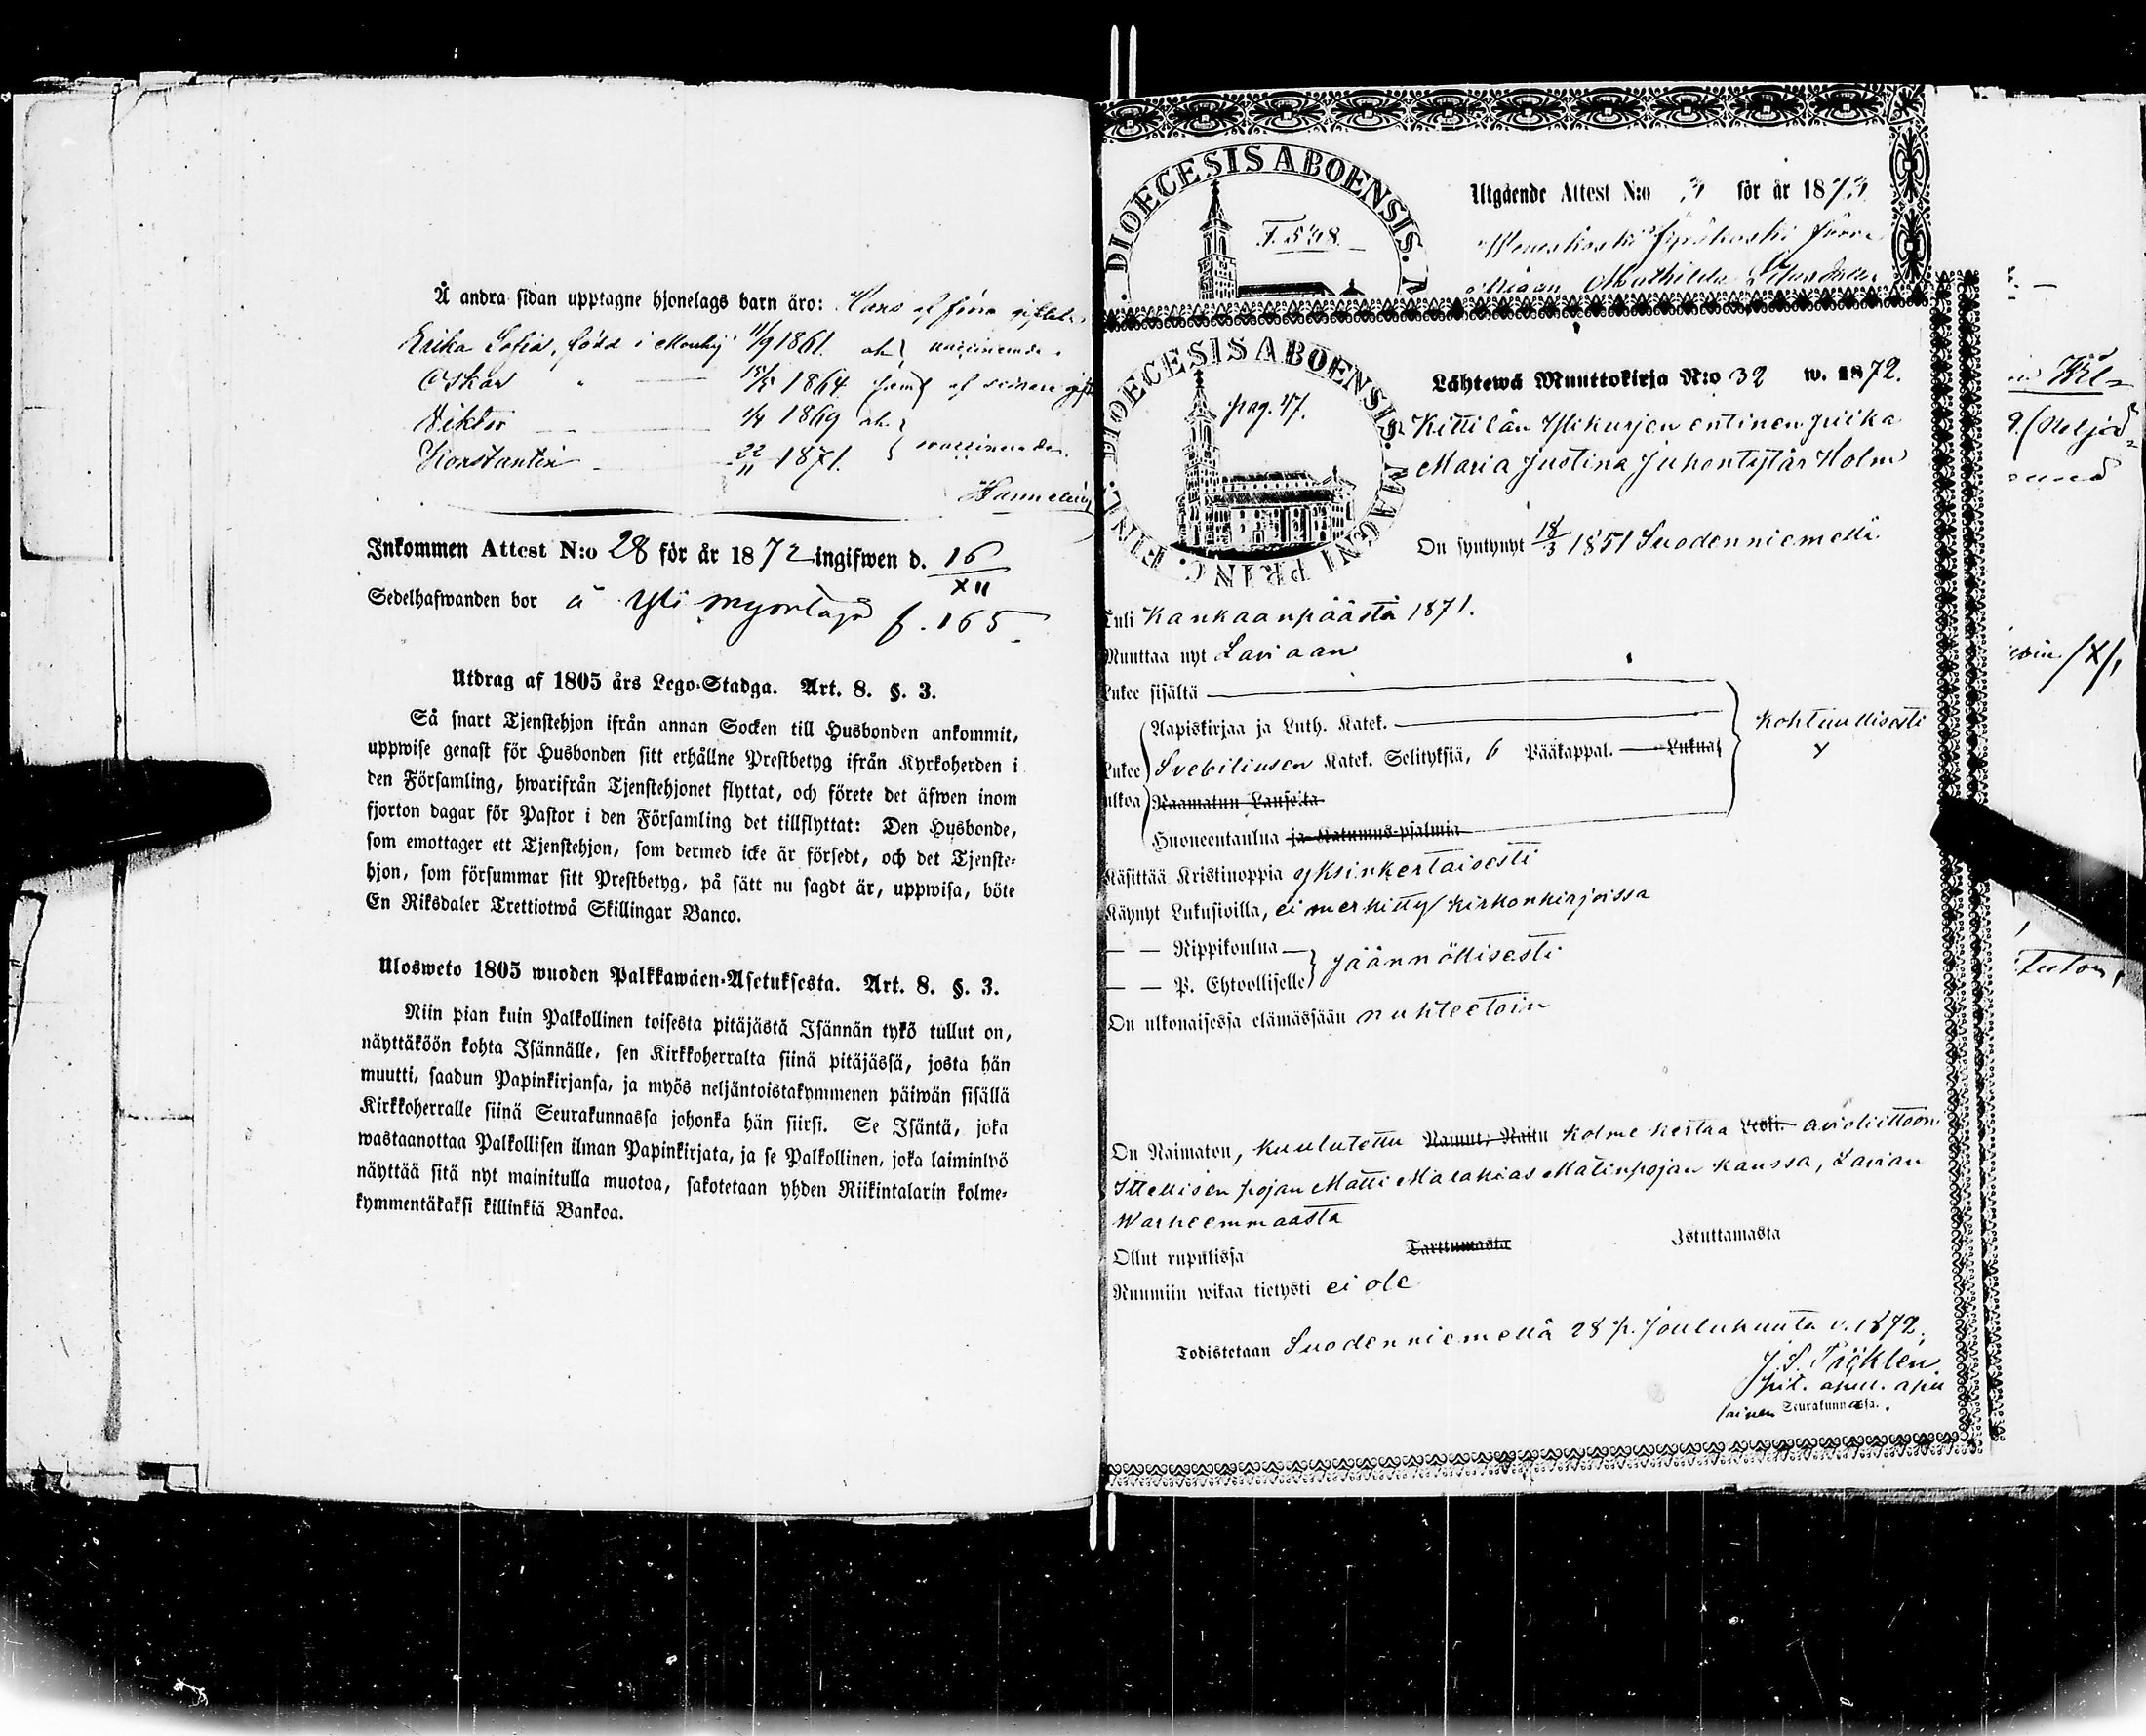 Å andra sidan upptagne hjonelags barn äro: Hans af förra giftet.
Erika Sofia, född i Mouhij 11/9 1861. vaccinerade.
Oskar " 15/5 1864 samt af senare gifte
Viktor 1/4 1869
Konstantin 22/11 1871. vaccinerade.
Inkommen Attest N:o 28 för år 1872 ingifwen d. 16/XII
Sedelhafwanden bor å Yli f. 165.
Utdrag af 1805 års Lego-Stadga. Art. 8. §. 3.
Så snart Tjenstehjon ifrån annan Socken till Husbonden ankommit,
uppwise genast för Husbonden sitt erhållne Prestbetyg ifrån Kyrkoherden i
den Församling, hwarifrån Tjenstehjonet flyttat, och förete det äfwen inom
fjorton dagar för Pastor i den Församling det tillflyttat: Den Husbonde,
som emottager ett Tjenstehjon, som dermed icke är försedt, och det Tjenste-
hjon, som försummar sitt Prestbetyg, på sätt nu sagdt är, uppwisa, böte
En Riksdaler Trettiotwå Skillingar Banco.
Ulosweto 1805 wuoden Palkkawäen-Asetuksesta. Art. 8. §. 3.
Niin pian kuin Palkollinen toisesta pitäjästä Isännän tykö tullut on,
näyttäköön kohta Isännälle, sen Kirkkoherralta siinä pitäjässä, josta hän
muutti, saadun Papinkirjansa, ja myös neljäntoistakymmenen päiwän sisällä
Kirkkoherralle siinä Seurakunnassa johonka hän siirsi. Se Isäntä, joka
wastaanottaa Palkollisen ilman Papinkirjata, ja se Palkollinen, joka laiminlyö
näyttää sitä nyt mainitulla muotoa, sakotetaan yhden Riikintalarin kolme-
kymmentäkaksi killinkiä Bankoa.
DIOECESIS ABOENSIS.
F. 548.
Utgående Attest N:o 3 för år 1873
Mathilda
DIOECESIS ABOENSIS. MAGNI PRINC. FINL.
pag. 47.
Lähtewä Muuttokirja N:o 32 w. 1872.
Kittilän Ylikurjen entinen piika
Maria Justina Juhontytär Holm
On syntynyt 18/3 1851 Suodenniemellä
Tuli Kankaanpäästä 1871.
Muuttaa nyt Laviaan
Lukee sisältä
Aapiskirjaa ja Luth. Katek.
kohtuullisesti
Lukee Svebiliusen Katek. Selityksiä, 6 Pääkappal. Lukua
ulkoa Raamatun Lauseita
Huoneentaulua ja Katumus-psalmia
Käsittää Kristinoppia yksinkertaisesti
Käynyt Lukusioilla, ei merkitty kirkonkirjoissa
— — Rippikoulua
jäännöllisesti
— — P. Ehtoolliselle
On ulkonaisessa elämässään nuhteetoin
On Naimaton, kuulutettu Nainut, Naitu kolme kertaa Leski avioliittoon
Ittellisen pojan Matti Malakias Matinpojan kanssa, Lavian
Warheemmaasta
Ollut rupulissa Tarttumasta Istuttamasta
Ruumiin wikaa tietysti ei ole
Todistetaan Suodenniemellä 28 p. Joulukuuta v. 1872.
pit. apul. apu
lainen Seurakunnassa.